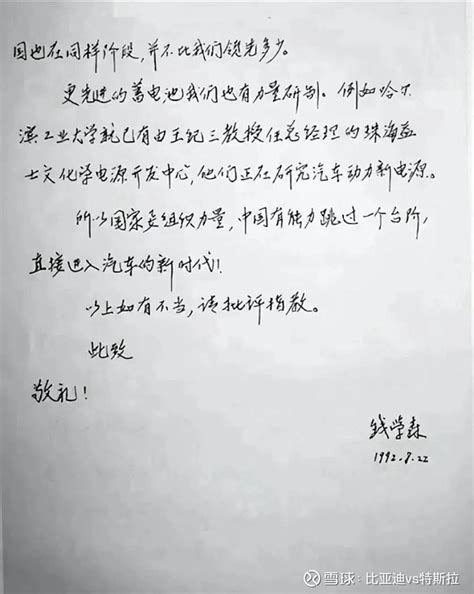 国也在同样阶段，并不比我们领先多少。
更先进的蓄电池我们也有力量研制。例如哈尔
滨工业大学就已有由王纪三教授任总经理的珠海益
士文化学电源开发中心，他们正在研究汽车动力新电源。
所以国家要组织力量，中国有能力跳过一个台阶，
直接进入汽车的新时代！
以上如有不当，请批评指教。
此致
敬礼！
钱学森
1992.8.22
雪球：比亚迪vs特斯拉